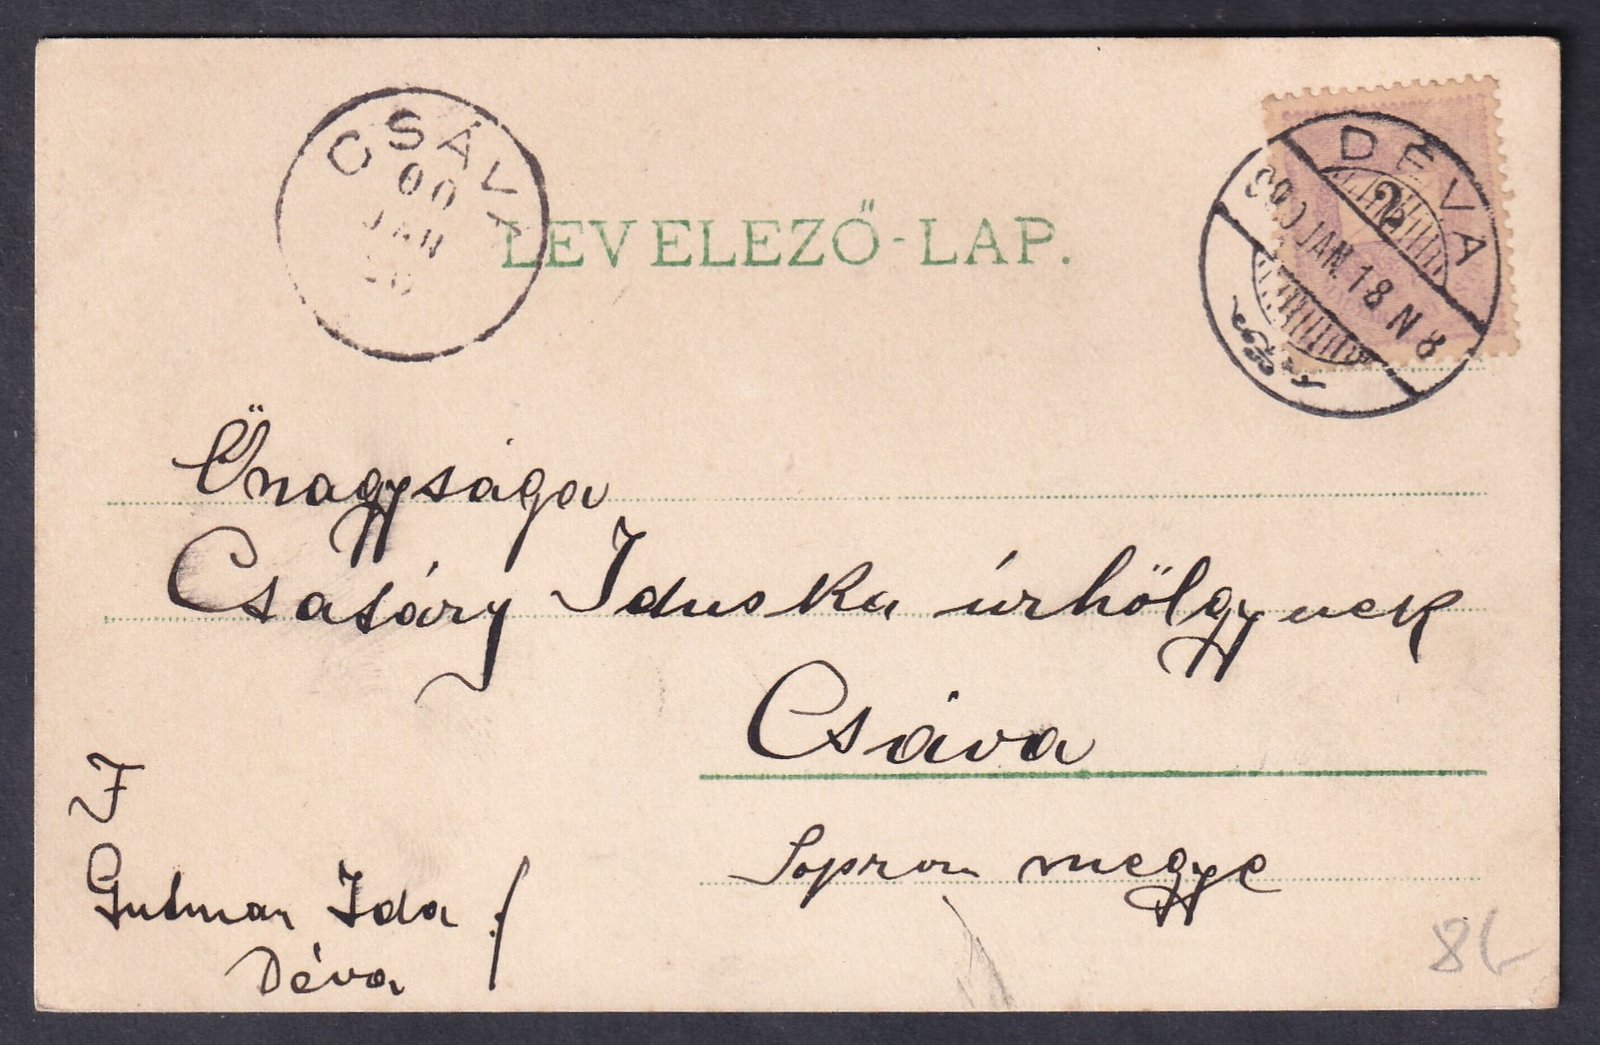 CSÁVA
00
JAN
20
LEVELEZŐ-LAP.
DÉVA
2
900 JAN. 18 N 8
Őnagysága
Csatáry Iduska úrhölgynek
Csáva
Sopron megye
F
Gutman Ida
Déva